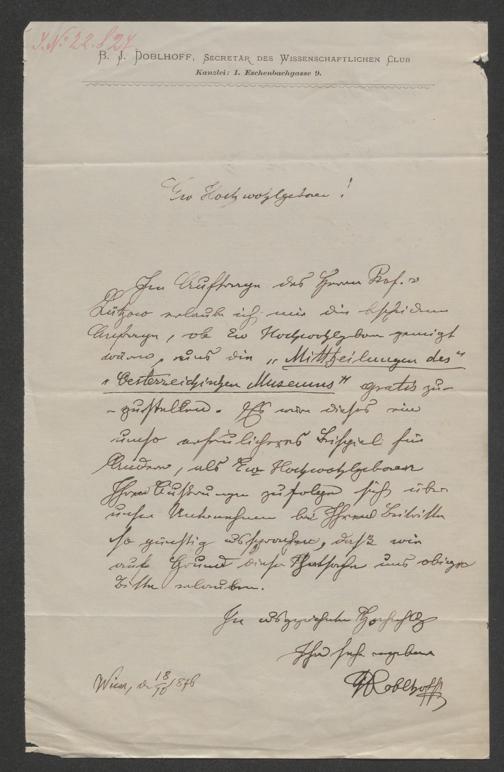 J. No 22.824
B. J. Doblhoff, Secretär des Wissenschaftlichen Club
Kanzlei: I. Eschenbachgasse 9.
Ew Hochwohlgeboren!
Im Auftrage des Herrn Prof. v
Lützow erlaube ich mir die bescheidene
Anfrage, ob Ew Hochwohlgeboren geneigt
wären, uns die „Mittheilungen des"
„Oesterreichischen Museums" gratis zu-
-zustellen. Es wäre dieses ein
umso erfreulicheres Beispiel für
Andere, als Ew Hochwohlgeboren
Ihren Äusserungen zufolge sich über
unser Unternehmen bei Ihrem Beitritte
so günstig aussprachen, daß wir
auf Grund dieser Thatsache uns obige
Bitte erlauben.
In ausgezeichneter Hochachtung
Ihr sehr ergebener
Doblhoff
Wien, den 18/10 1876